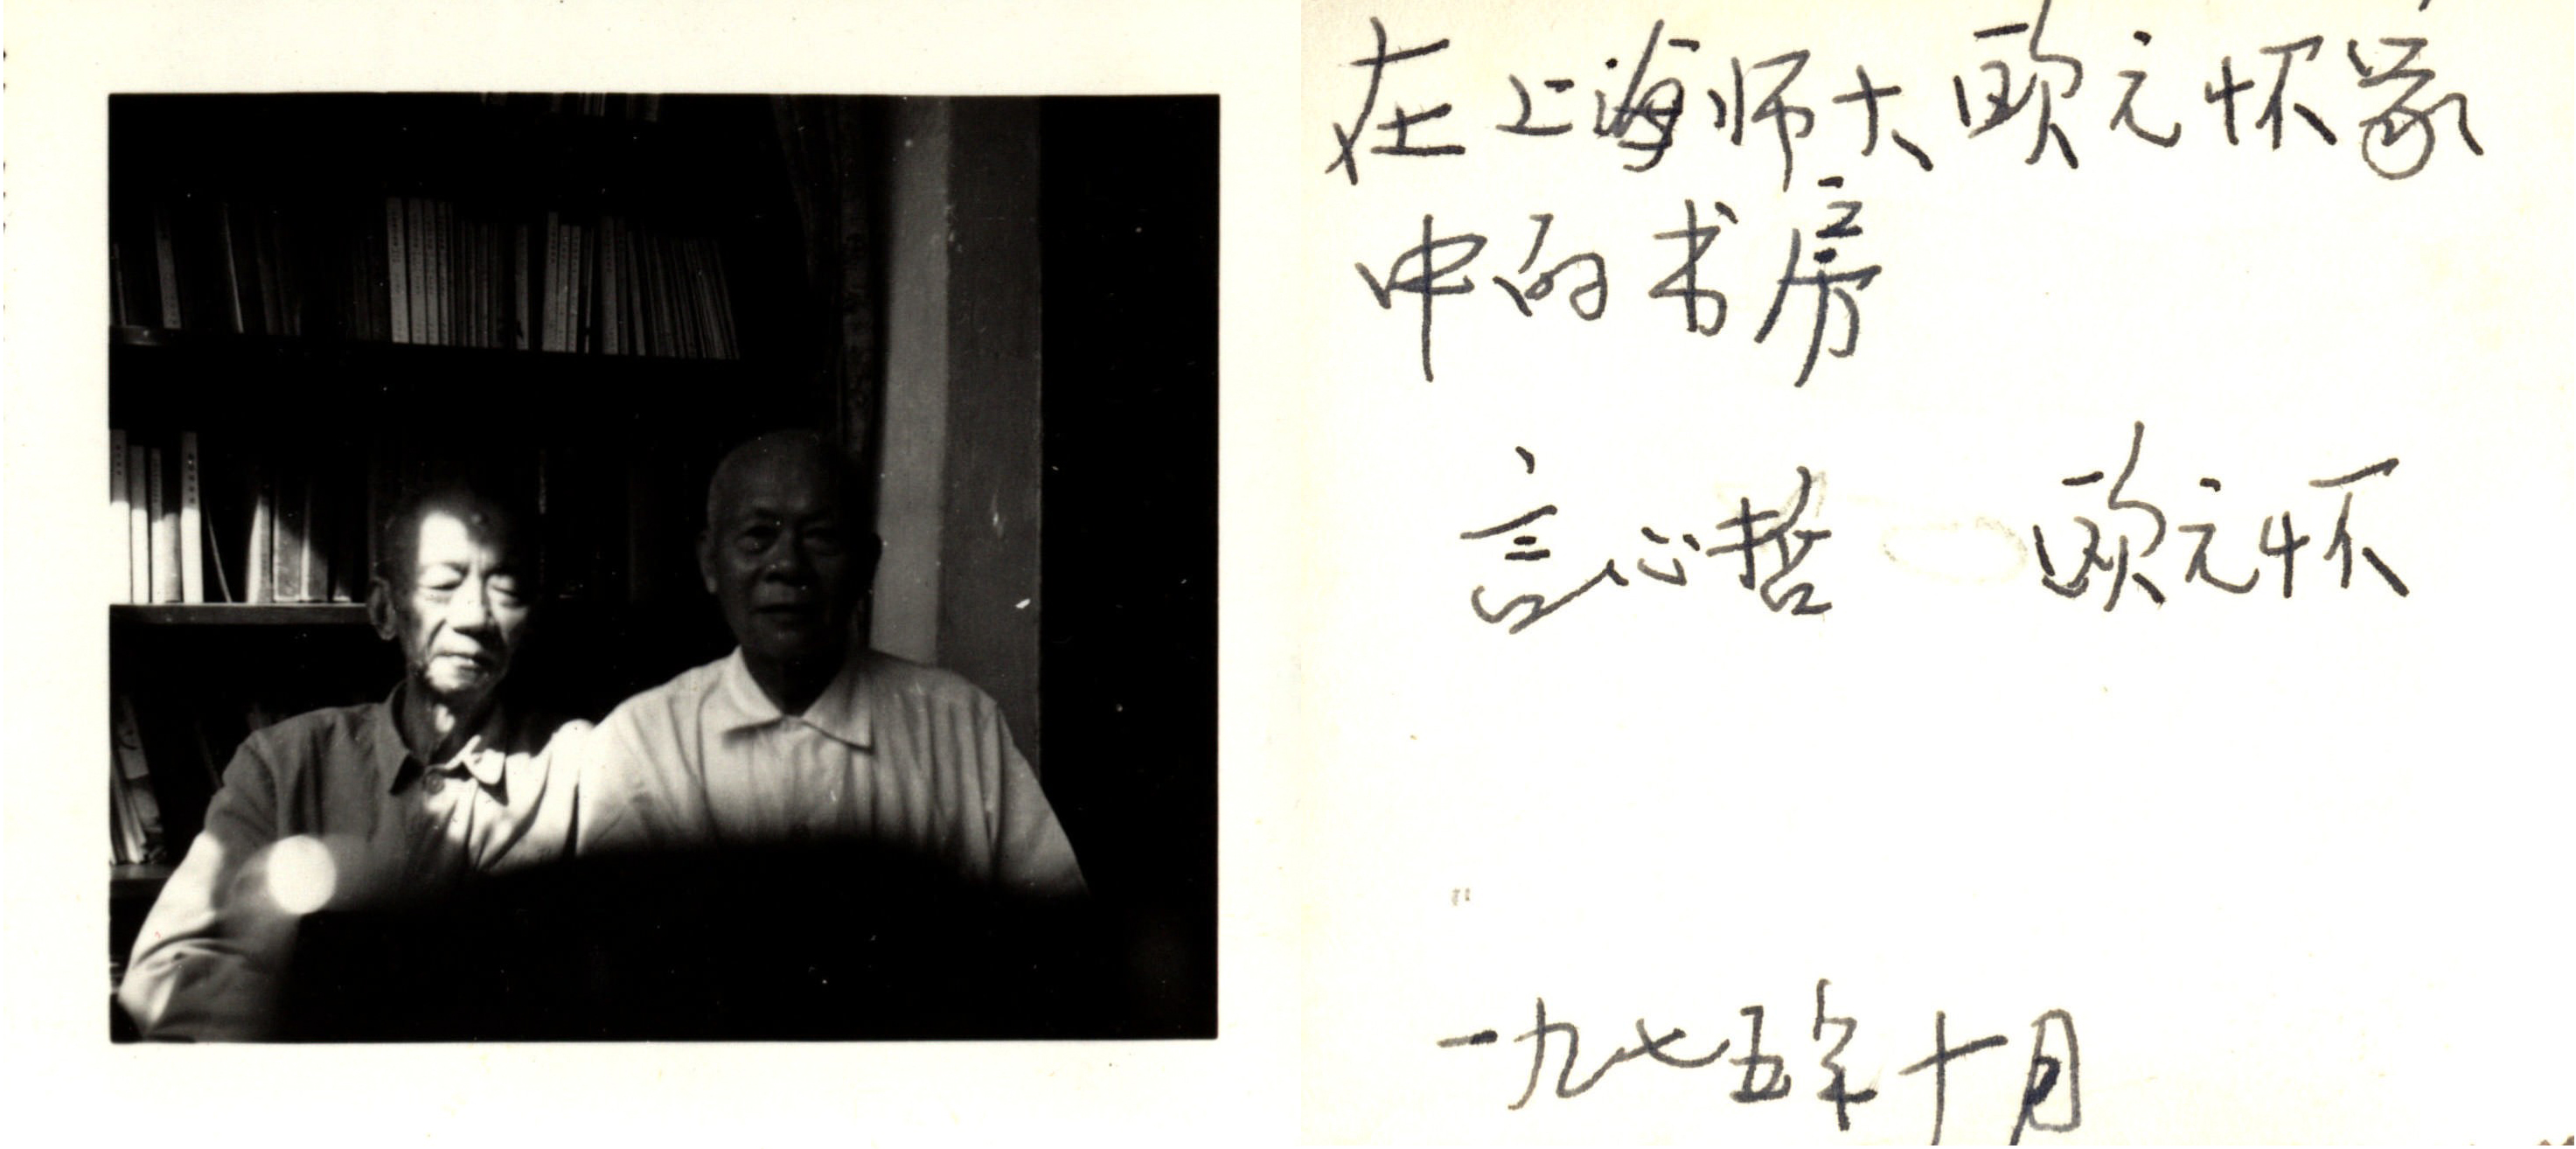 在上海师大欧元怀家
中的书房
言心哲 欧元怀
一九七五年十月